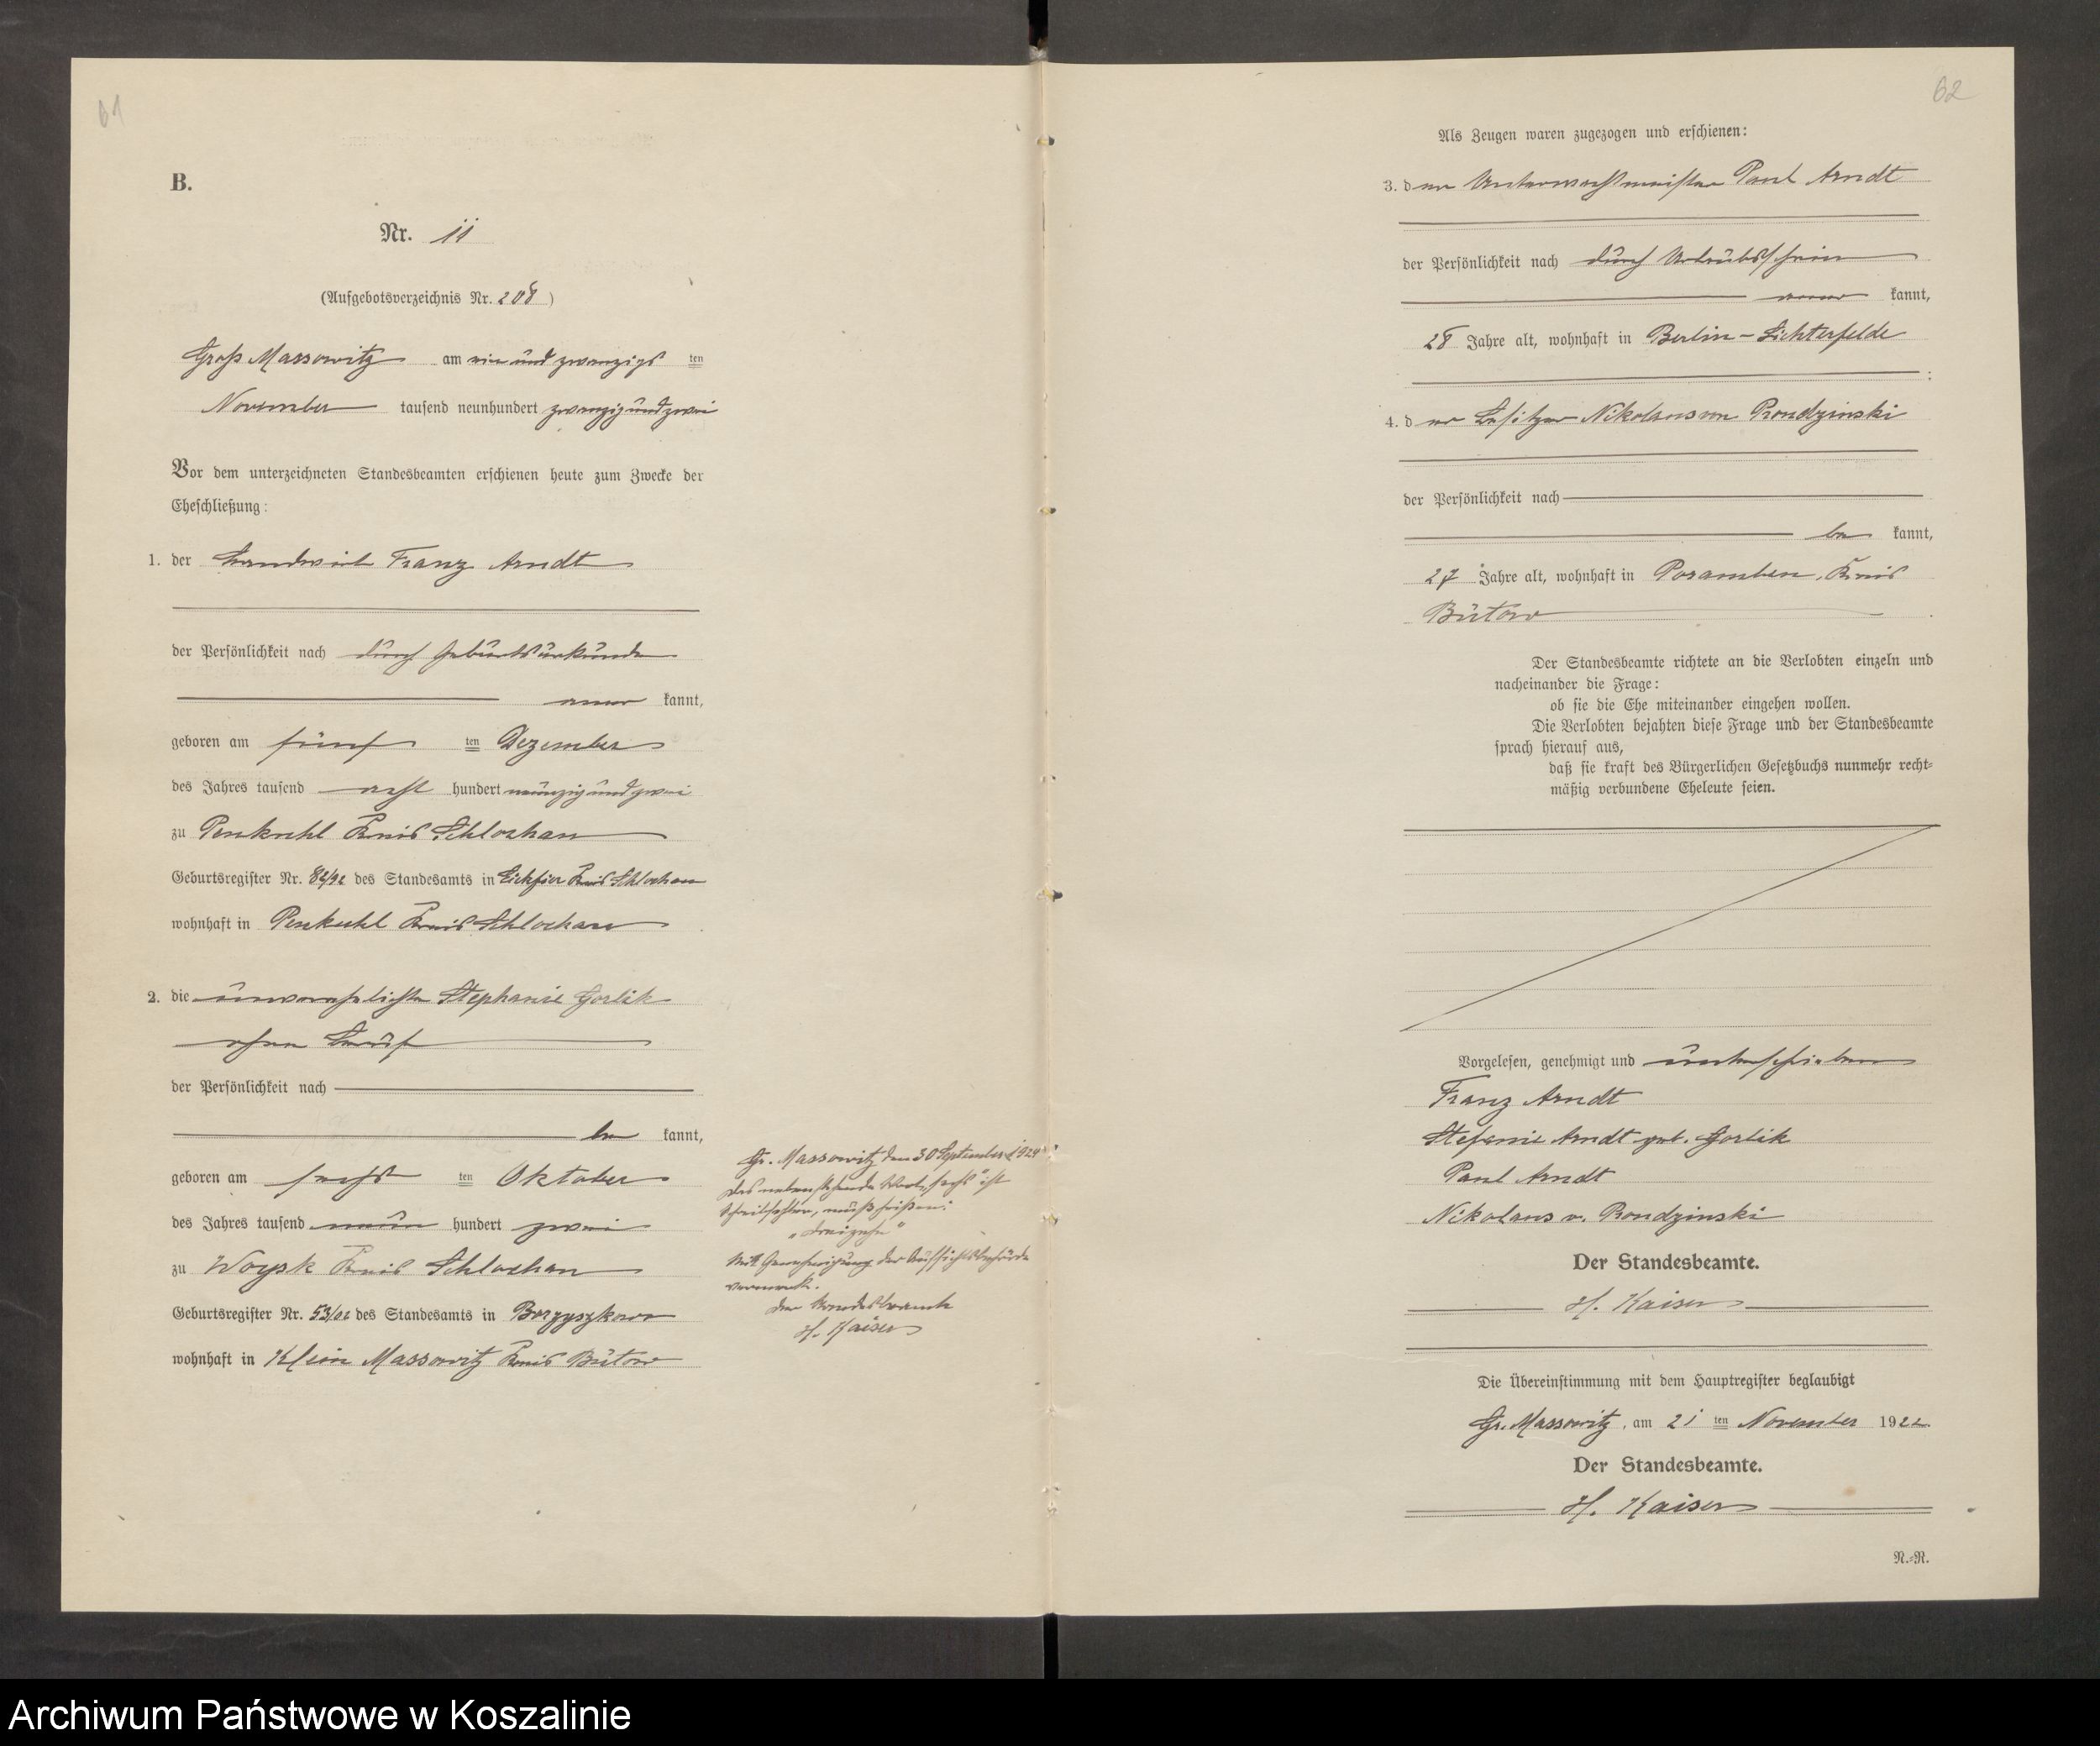 61
B.
Nr. 11
(Aufgebotsverzeichnis Nr. 208)
Groß Massowitz am ein und zwanzigs ten
November tausend neunhundert zwanzig und zwei
Vor dem unterzeichneten Standesbeamten erschienen heute zum Zwecke der
Eheschließung:
1. der Landwirt Franz Arndt
der Persönlichkeit nach durch Geburtsurkunde
aner kannt,
geboren am fünf ten Dezember
des Jahres tausend acht hundert neunzig und zwei
zu Penkuhl Kreis Schlochau
Geburtsregister Nr. 82/92 des Standesamts in Eickfier Kreis Schlochau
wohnhaft in Penkuhl Kreis Schlochau
2. die unverehelichte Stephanie Gorlik
ohne Beruf
der Persönlichkeit nach
be kannt,
geboren am sechs ten Oktober
des Jahres tausend neun hundert zwei
zu Woysk Kreis Schlochau
Geburtsregister Nr. 53/02 des Standesamts in Borzyszkowo
wohnhaft in Klein Massowitz Kreis Bütow
Gr. Massowitz den 30 September 1924
Das nebenstehende Wort „sechs" ist
Schreibfehler, muß heißen:
„dreizehn"
Mit Genehmigung der Aufsichtsbehörde
vermerkt.
Der Standesbeamte
H. Kaiser
62
Als Zeugen waren zugezogen und erschienen:
3. der Unterwachtmeister Paul Arndt
der Persönlichkeit nach durch Urlaubsschein
aner kannt,
28 Jahre alt, wohnhaft in Berlin-Lichterfelde
;
4. der Besitzer Nikolaus von Rondzinski
der Persönlichkeit nach
be kannt,
27 Jahre alt, wohnhaft in Kreis
Bütow.
Der Standesbeamte richtete an die Verlobten einzeln und
nacheinander die Frage:
ob sie die Ehe miteinander eingehen wollen.
Die Verlobten bejahten diese Frage und der Standesbeamte
sprach hierauf aus,
daß sie kraft des Bürgerlichen Gesetzbuchs nunmehr recht-
mäßig verbundene Eheleute seien.
Vorgelesen, genehmigt und unterschrieben
Franz Arndt
Stefanie Arndt geb. Gorlik
Paul Arndt
Nikolaus v. Rondzinski
Der Standesbeamte.
H. Kaiser
Die Übereinstimmung mit dem Hauptregister beglaubigt
Gr. Massowitz, am 21 ten November 1922
Der Standesbeamte.
H. Kaiser
N.-R.
Archiwum Państwowe w Koszalinie